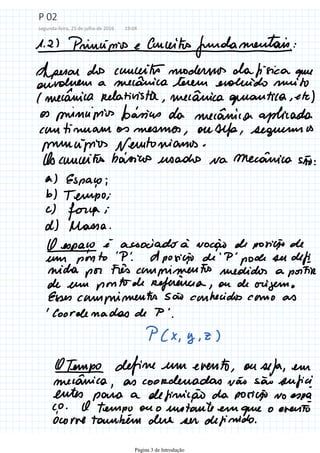 P 02
segunda-feira, 25 de julho de 2016 19:04
1.2) Princípios e Conceitos fundamentais:
Apesar dos conceitos modernos da física que
envolvem a mecânica terem evoluído muito
(mecânica relativista, mecânica quântica, etc)
os princípios básicos da mecânica aplicada
continuam os mesmos, ou seja, seguem os
princípios Newtonianos.
Os conceitos básicos usados na Mecânica são:
a) Espaço;
b) Tempo;
c) força;
d) Massa.
O espaço é associado à noção de posição de
um ponto 'P'. A posição de 'P' pode ser defi
nida por três comprimentos medidos a partir
de um ponto de referência, ou de origem.
Esses comprimentos são conhecidos como as
'Coordenadas de P'.
P(x, y, z)
O Tempo define um evento, ou seja, em
mecânica, as coordenadas não são sufici
entes para a definição da posição no espa
ço. O tempo ou o instante em que o evento
ocorre também deve ser definido.
Página 3 de Introdução